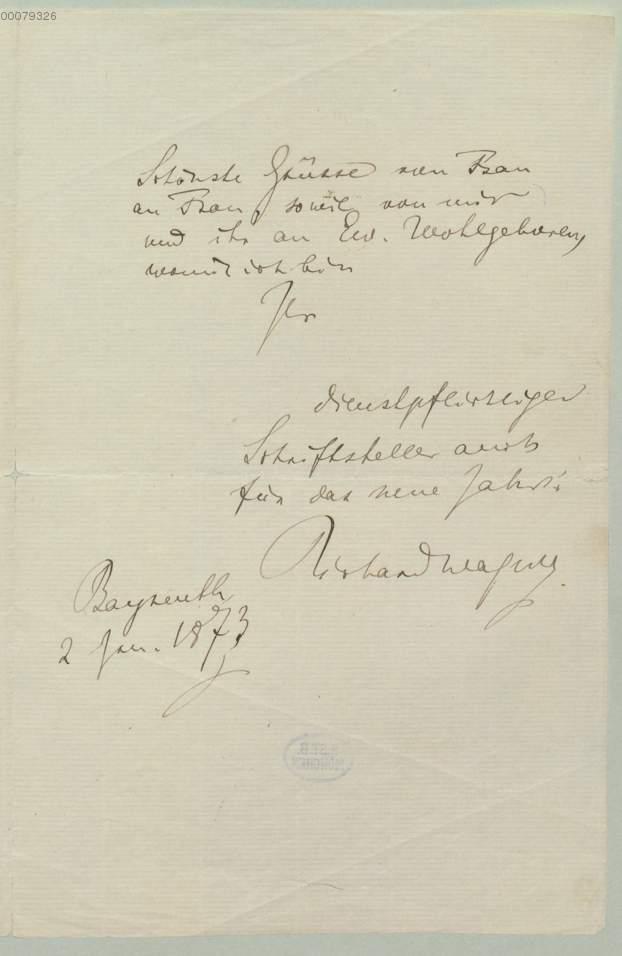 00079326
Schönste Grüsse von Frau
an Frau, sowie von mir
und ihr an Ew. Wohlgeboren,
womit ich bin
Ihr
dienstpflichtiger
Schriftsteller auch
für das neue Jahr!
Richard Wagner
Bayreuth
2 Jan. 1873
B.ST.B.
MÜNCHEN